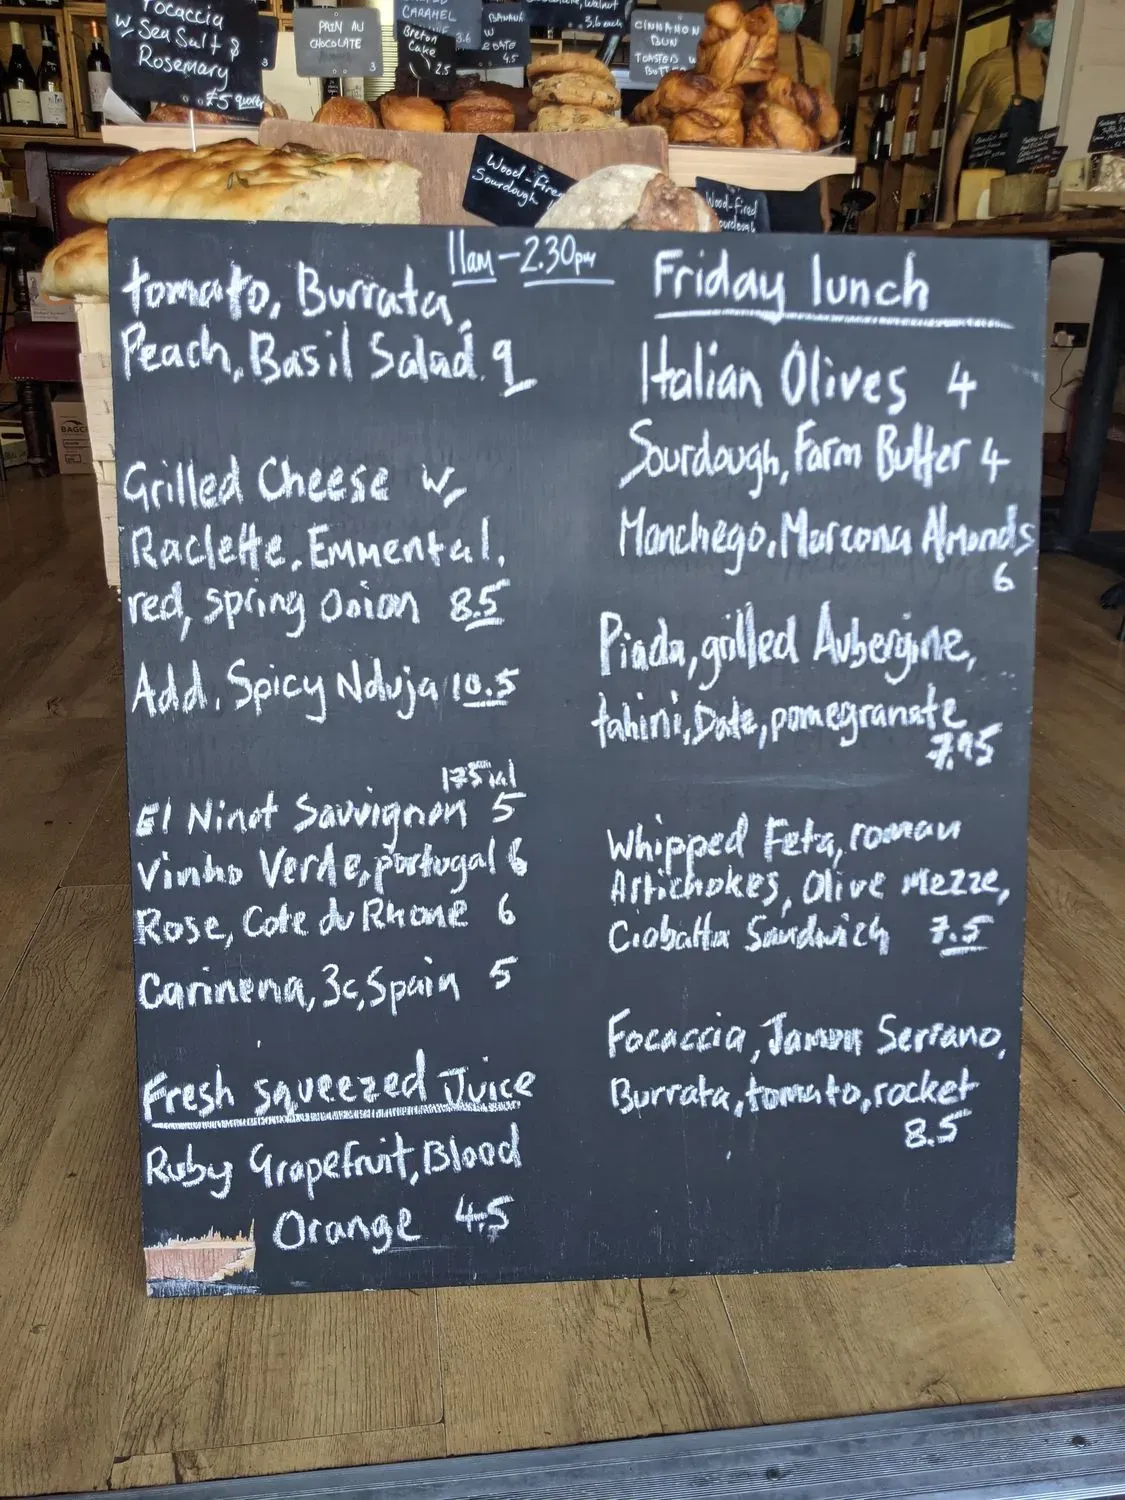 Focaccia
w Sea Salt &
Rosemary
£5 quarter
PAIN AU
CHOCOLATE
3
CARAMEL
3.6
Breton
Cake
2.5
BANANA
W
& DATE
4.5
Walnut
3.6 each
CINNAMON
BUN
TOASTED W
BUTTER
Wood-fired
Sourdough
Wood-fired
Sourdough
11am-2.30pm
tomato, Burrata,
Peach, Basil Salad. 9
Grilled Cheese w/
Raclette, Emmental,
red, spring onion 8.5
Add. Spicy Nduja 10.5
175ml
El Ninot Sauvignon 5
Vinho Verde, portugal 6
Rose, Cote du Rhone 6
Carinena, 3c, Spain 5
Fresh squeezed Juice
Ruby Grapefruit, Blood
Orange 4.5
Friday lunch
Italian Olives 4
Sourdough, Farm Butter 4
Manchego, Marcona Almonds
6
Piada, grilled Aubergine,
tahini, Date, pomegranate
7.95
Whipped Feta, roman
Artichokes, Olive mezze,
Ciabatta Sandwich 7.5
Focaccia, Jamon Serrano,
Burrata, tomato, rocket
8.5